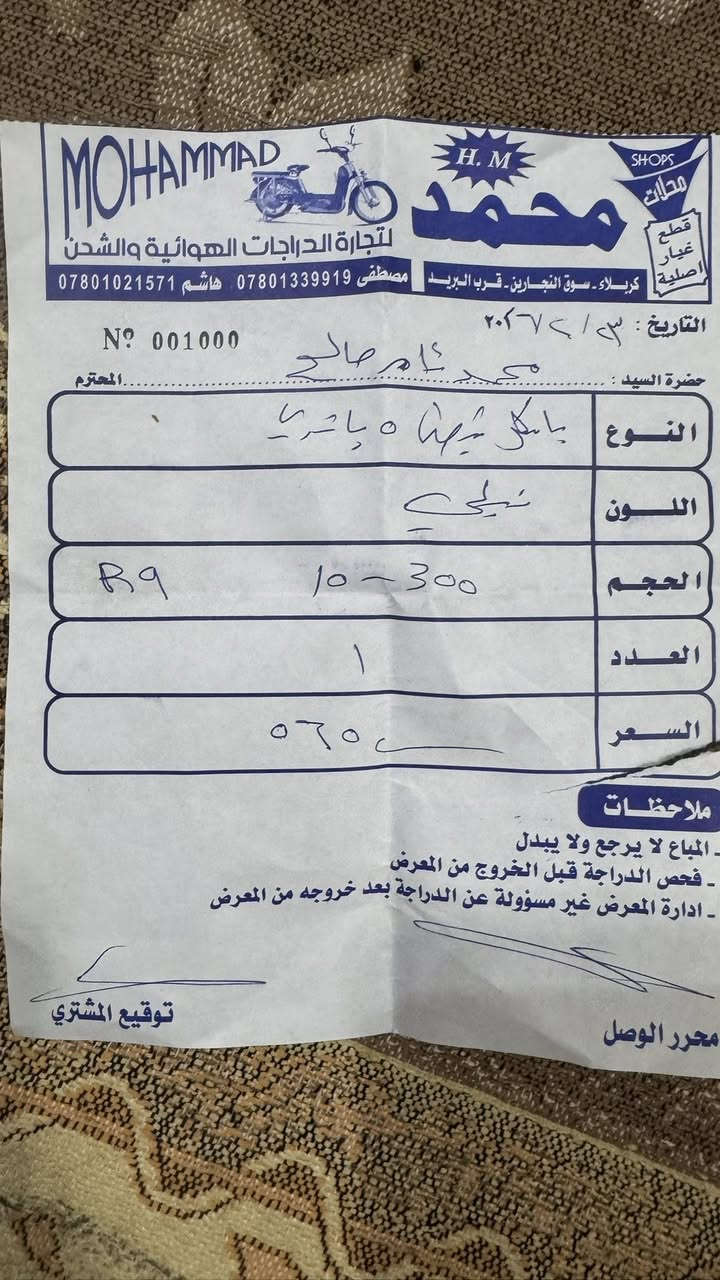 MOHAMMAD
H. M
محمد
SHOPS
محلات
قطع
غيار
اصلية
لتجارة الدراجات الهوائية والشحن
كربلاء - سوق النجارين - قرب البريد
مصطفى 07801339919 هاشم 07801021571
التاريخ :
Nº 001000
حضرة السيد : محمد ثامر صالح المحترم
النوع ٥ باتري
اللون نيلي
الحجم 300 - 10 R9
العدد ١
السعر ٥٦٥
ملاحظات
- المباع لا يرجع ولا يبدل
- فحص الدراجة قبل الخروج من المعرض
- ادارة المعرض غير مسؤولة عن الدراجة بعد خروجه من المعرض
توقيع المشتري
محرر الوصل